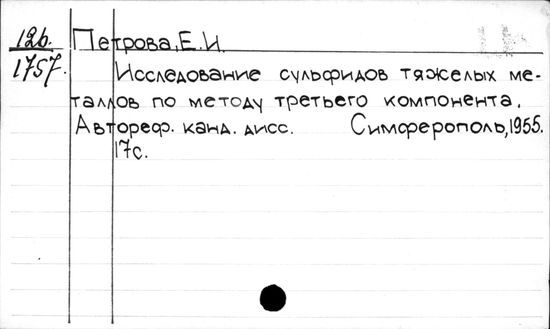 12б. Петрова, Е.И.
1757. Исследование сульфидов тяжелых ме-
таллов по методу третьего компонента.
Автореф. канд. дисс. Симферополь, 1955.
17с.